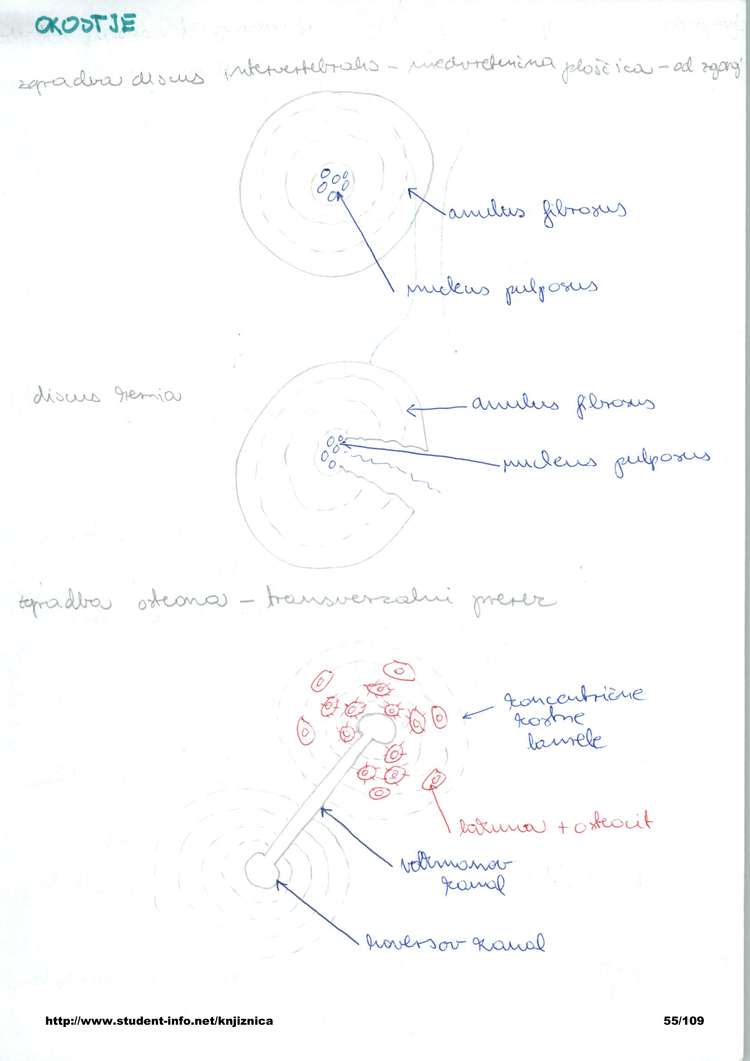 OKOSTJE
zgradba discus intervertebralis - medvretenčna ploščica - od zgoraj
anulus fibrosus
nucleus pulposus
discus hernia
anulus fibrosus
nucleus pulposus
zgradba osteona - transverzalni prerez
koncentrične
kostne
lamele
lakuna + osteocit
volkmanov
kanal
haversov kanal
http://www.student-info.net/knjiznica
55/109